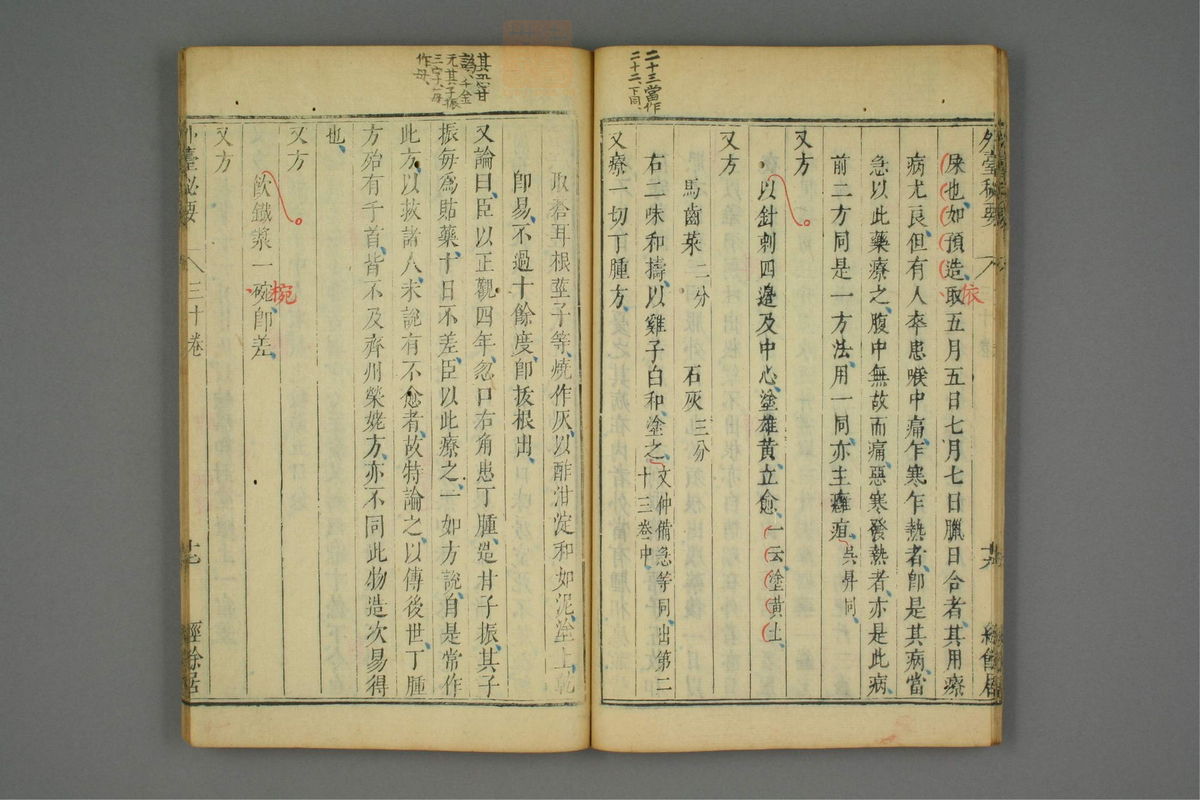 二十三當作
二十二下同
外臺秘要
屎也如預造取五月五日七月七日臘日合者其用療
依
病尤良但有人卒患喉中痛乍寒乍熱者卽是其病當
急以此藥療之腹中無故而痛惡寒發熱者亦是此病
前二方同是一方法用一同亦主癰疽吳昇同
又方
以針刺四邊及中心塗雄黃立愈一云塗黃土
又方
馬齒菜二分 石灰三分
右二味和擣以雞子白和塗之文仲備急等同出第二
十三卷中
又療一切丁腫方
經餘居
其恐甘
譌千金
元其子振
三字六一
作母
取蒼耳根莖子等燒作灰以酢泔淀和如泥塗上乾
卽易不過十餘度卽拔根出
又論曰臣以正觀四年忽口右角患丁腫造甘子振其子
振每爲貼藥十日不差臣以此療之一如方說自是常作
此方以救諸人未說有不愈者故特論之以傳後世丁腫
方殆有千首皆不及齊州榮姥方亦不同此物造次易得
也
又方
飮鐵漿一碗卽差
椀
又方
外臺祕要 三十卷
經餘居